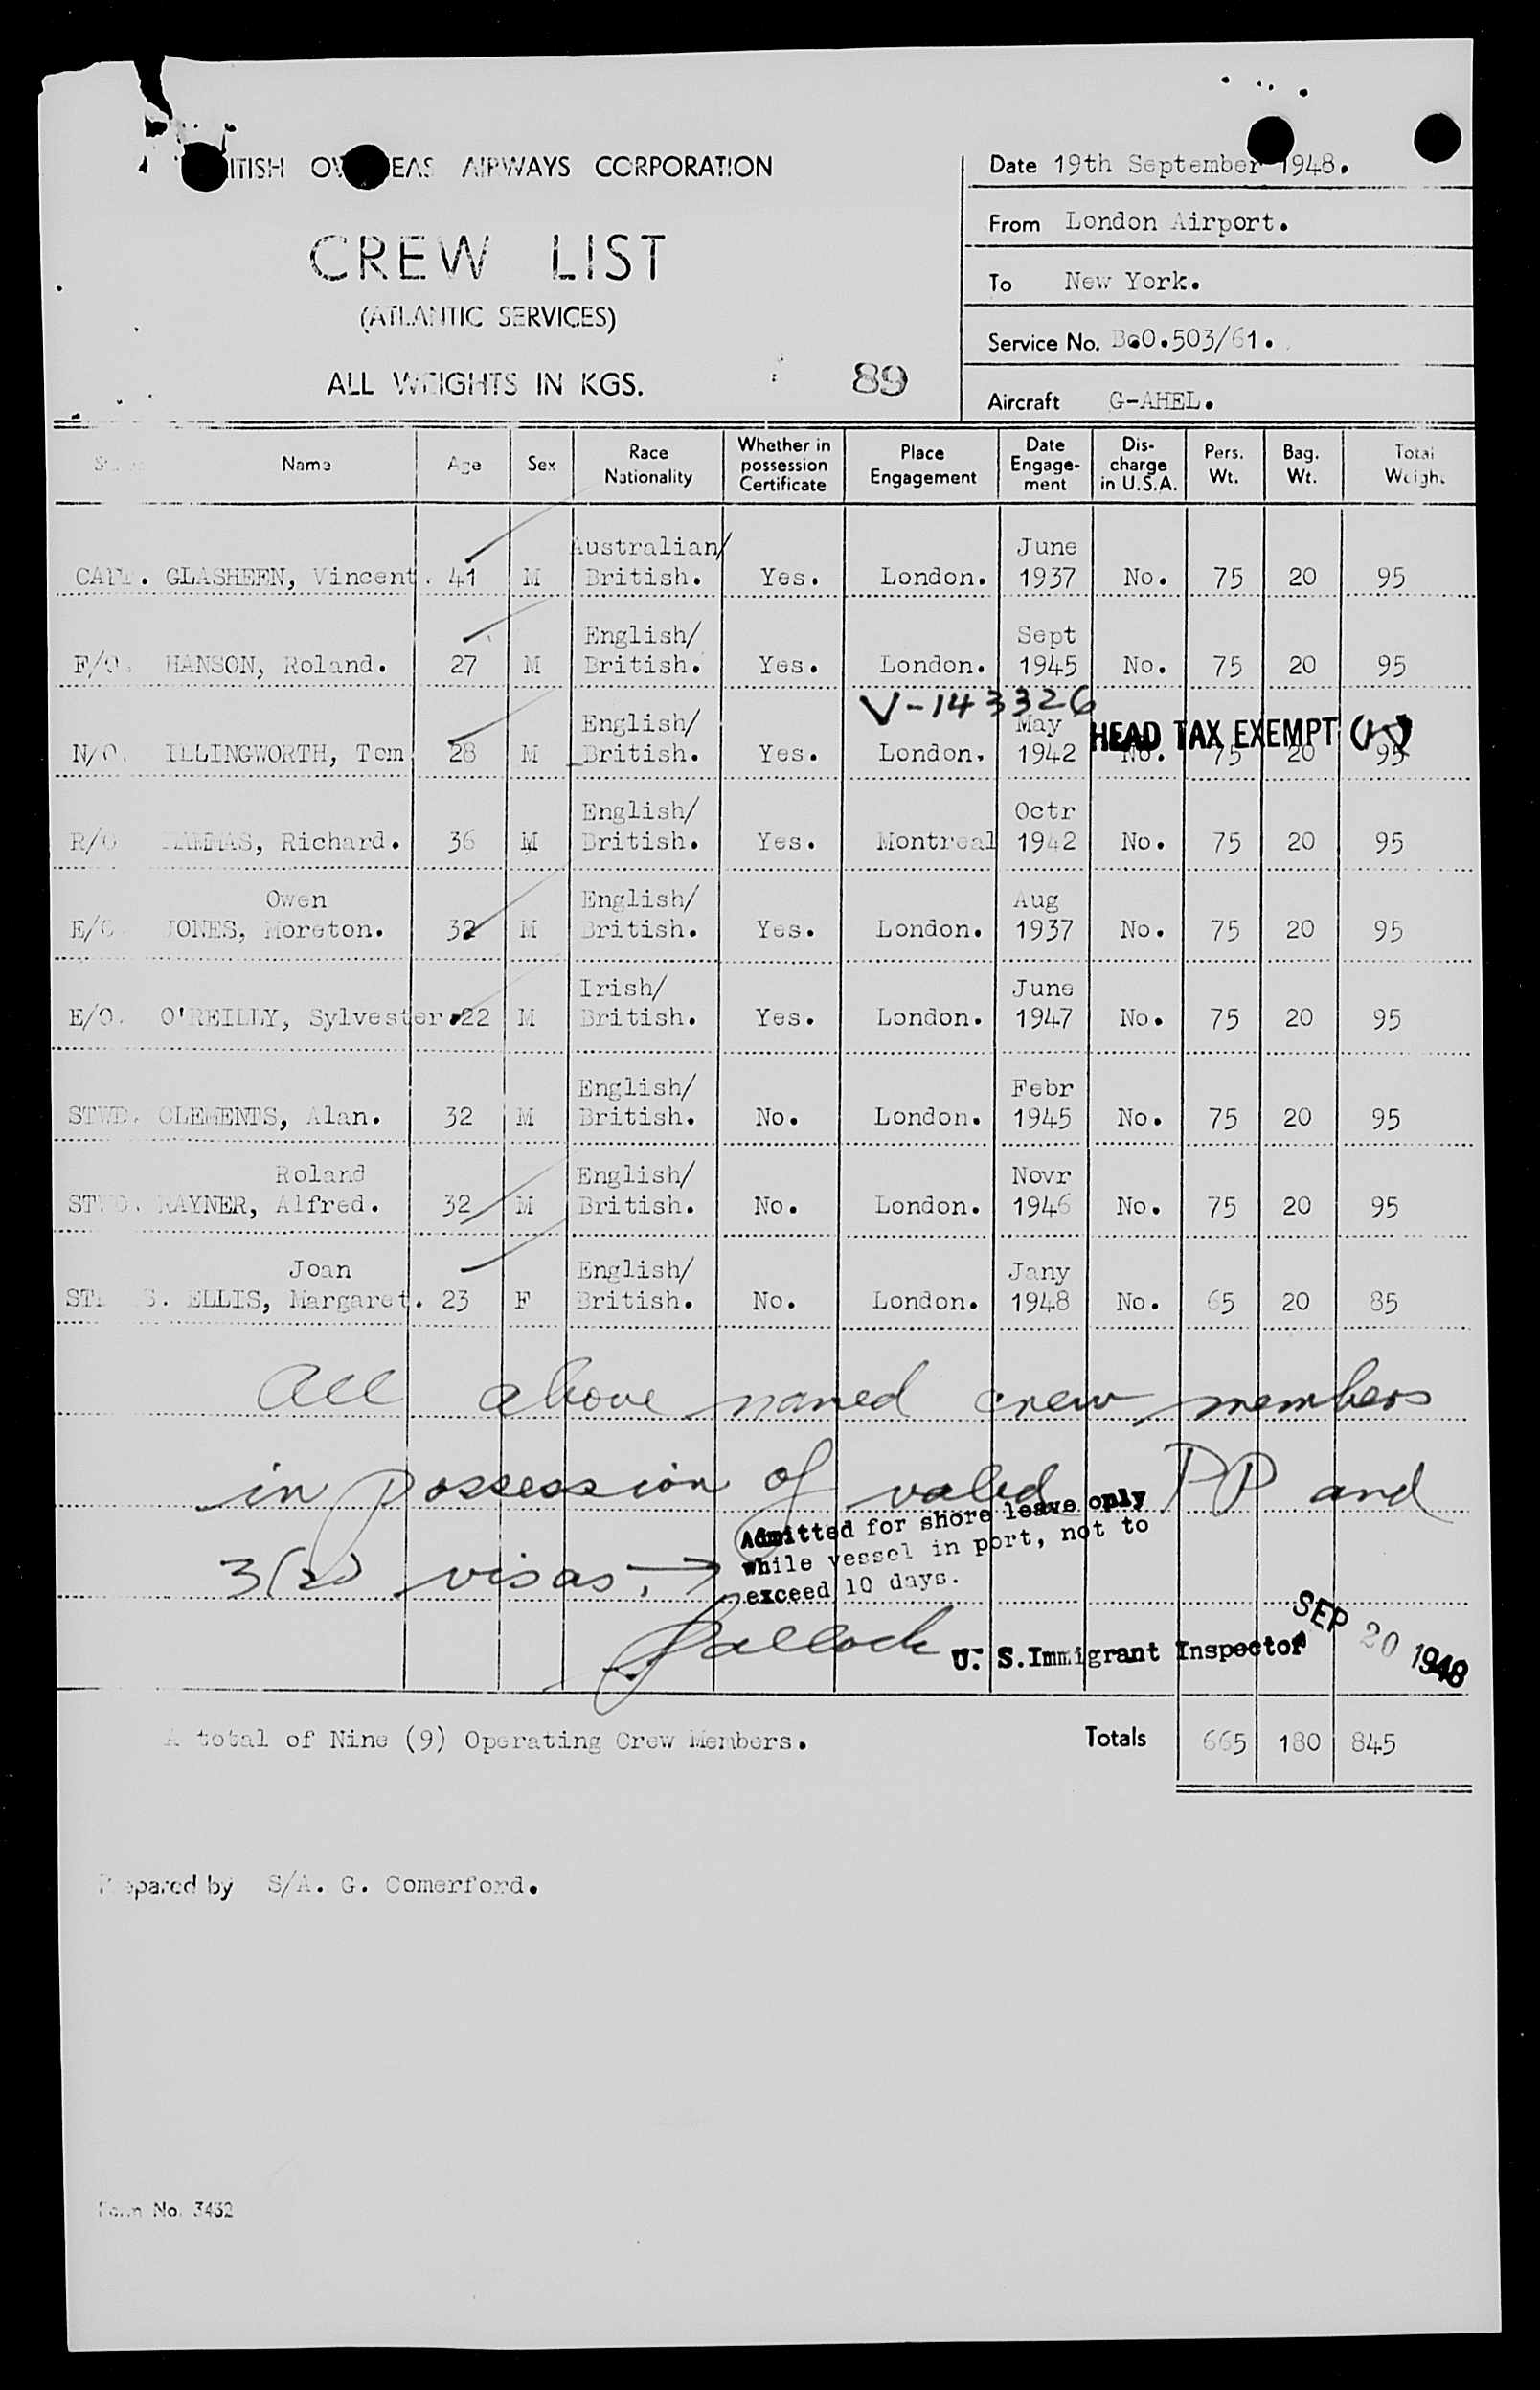 BRITISH OVERSEAS AIRWAYS CORPORATION
CREW LIST
(ATLANTIC SERVICES)
ALL WEIGHTS IN KGS.
89
Date 19th September 1948.
From London Airport.
To New York.
Service No. BoO.503/61.
Aircraft G-AHEL.
Name Age Sex Race Nationality Whether in possession Certificate Place Engagement Date Engage-ment Dis-charge in U.S.A. Pers. Wt. Bag. Wt. Total Weight
Australian/ June
CAPT. GLASHEEN, Vincent. 41 M British. Yes. London. 1937 No. 75 20 95
English/ Sept
F/O. HANSON, Roland. 27 M British. Yes. London. 1945 No. 75 20 95
V-143326
HEAD TAX EXEMPT
English/ May
N/O. ILLINGWORTH, Tom 28 M British. Yes. London. 1942 No. 75 20 95
English/ Octr
R/O Richard. 36 M British. Yes. Montreal 1942 No. 75 20 95
Owen English/ Aug
E/O JONES, Moreton. 32 M British. Yes. London. 1937 No. 75 20 95
Irish/ June
E/O. O'REILLY, Sylvester. 22 M British. Yes. London. 1947 No. 75 20 95
English/ Febr
STWD. CLEMENTS, Alan. 32 M British. No. London. 1945 No. 75 20 95
Roland English/ Novr
STWD. RAYNER, Alfred. 32 M British. No. London. 1946 No. 75 20 95
Joan English/ Jany
ELLIS, Margaret. 23 F British. No. London. 1948 No. 65 20 85
All above named crew members
in possession of valid PP and
3(2) visas.
Admitted for shore leave only
while vessel in port, not to
exceed 10 days.
U. S. Immigrant Inspector
SEP 20 1948
A total of Nine (9) Operating Crew Members. Totals 665 180 845
Prepared by S/A. G. Comerford.
Form No. 3432